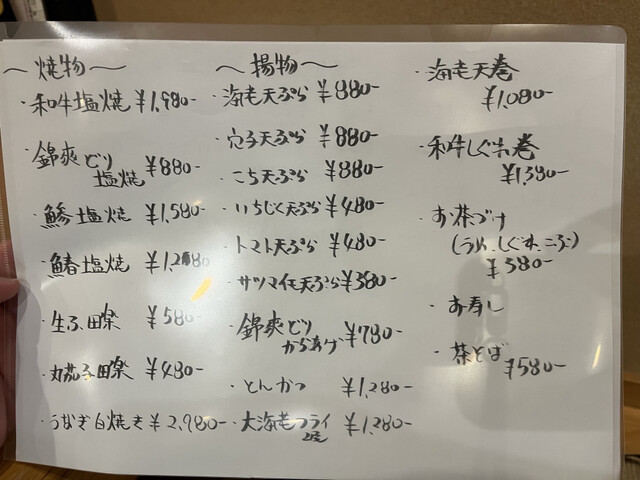 ～焼物～
・和牛塩焼 ¥1,980-
錦爽どり
塩焼 ¥880-
・鯵塩焼 ¥1,580-
・鰆塩焼 ¥1,
・生ふ田楽 ¥580-
・丸茄子田楽 ¥480-
・うなぎ白焼き ¥2,980-
～揚物～
・海老天ぷら ¥880-
・穴子天ぷら ¥880-
・こち天ぷら ¥880-
・いちじく天ぷら ¥480-
・トマト天ぷら ¥480-
・サツマイモ天ぷら ¥380-
・錦爽どり
からあげ ¥780-
・とんかつ ¥1,280-
・大海老フライ ¥1,280-
・海老天巻
¥1,080-
・和牛しぐれ巻
¥1,380-
・お茶づけ
(うめ、しぐれ、こぶ)
¥380-
・お寿し
・茶そば
¥580-